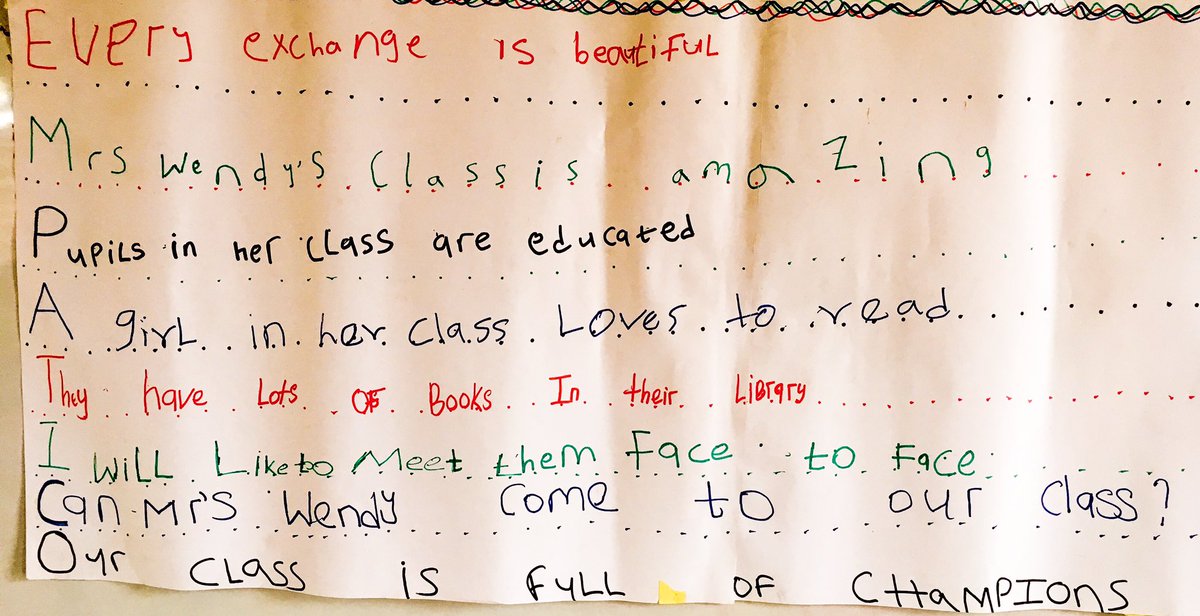 Every exchange is beautiful
Mrs Wendy's Class is amaZing
Pupils in her class are educated
A girl in her class Loves to read
They have Lots OF Books In their Library
I will Like to Meet them Face to Face
Can Mr's Wendy come to our class?
Our CLASS is FULL OF CHAMPIONS